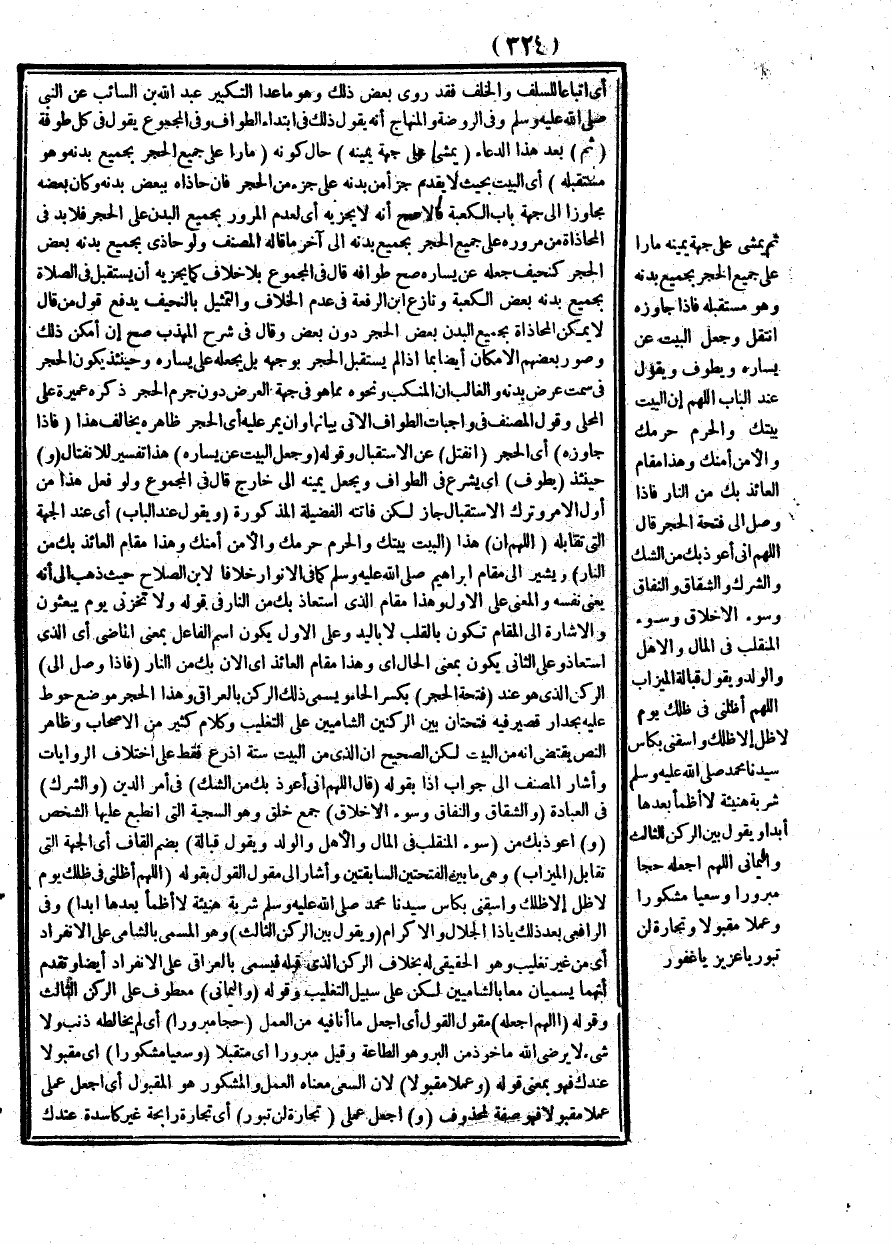 (٣٢٤)
أى اتباعا للسلف والخلف فقد روى بعض ذلك وهو ماعدا التكبير عبد الله بن السائب عن النبى
صلى الله عليه وسلم وفى الروضة والمنهاج أنه يقول ذلك فى ابتداء الطواف وفى المجموع يقول فى كل طوفة
( ثم ) بعد هذا الدعاء ( يمشى على جهة يمينه ) حال كونه ( مارا على جميع الحجر بجميع بدنه وهو
مستقبله ) أى البيت بحيث لا يقدم جزأ من بدنه على جزء من الحجر فان حاذاه ببعض بدنه وكان بعضه
مجاوزا الى جهة باب الكعبة فالاصح أنه لا يجزيه أى لعدم المرور بجميع البدن على الحجر فلا بد فى
المحاذاة من مروره على جميع الحجر بجميع بدنه الى آخر ما قاله المصنف ولو حاذى بجميع بدنه بعض
الحجر كنحيف جعله عن يساره صح طوافه قال فى المجموع بلاخلاف كما يجزيه أن يستقبل فى الصلاة
بجميع بدنه بعض الكعبة ونازع ابن الرفعة فى عدم الخلاف والتمثيل بالنحيف يدفع قول من قال
لا يمكن المحاذاة بجميع البدن بعض الحجر دون بعض وقال فى شرح المهذب صح إن أمكن ذلك
وصور بعضهم الامكان أيضا بما اذا لم يستقبل الحجر بوجهه بل يجعله على يساره وحينئذ يكون الحجر
فى سمت عرض بدنه والغالب ان المنكب ونحوه مما هو فى جهة العرض دون جرم الحجر ذكره عميرة على
المحلى وقول المصنف فى واجبات الطواف الآتى بيانها وان يمر عليه أى الحجر ظاهره يخالف هذا ( فاذا
جاوزه ) أى الحجر ( انفتل ) عن الاستقبال وقوله (وجعل البيت عن يساره) هذا تفسير للانفتال (و)
حينئذ (يطوف) اى يشرع فى الطواف ويجعل يمينه الى خارج قال فى المجموع ولو فعل هذا من
أول الامر وترك الاستقبال جاز لكن فاتته الفضيلة المذكورة (ويقول عند الباب) أى عند الجهة
التى تقابله ( اللهم ان) هذا (البيت بيتك والحرم حرمك والامن أمنك وهذا مقام العائذ بك من
النار) ويشير الى مقام ابراهيم صلى الله عليه وسلم كما فى الانوار خلافا لابن الصلاح حيث ذهب الى أنه
يعنى نفسه والمعنى على الاول وهذا مقام الذى استعاذ بك من النار فى قوله ولا تخزنى يوم يبعثون
والاشارة الى المقام تكون بالقلب لا باليد وعلى الاول يكون اسم الفاعل بمعنى الماضى أى الذى
استعاذ وعلى الثانى يكون بمعنى الحال اى وهذا مقام العائذ اى الان بك من النار (فاذا وصل الى)
الركن الذى هو عند (فتحة الحجر) بكسر الحاء ويسمى ذلك الركن بالعراقى وهذا الحجر موضع حوط
عليه بجدار قصير فيه فتحتان بين الركنين الشاميين على التغليب وكلام كثير من الاصحاب وظاهر
النص يقتضى انه من البيت لكن الصحيح ان الذى من البيت ستة اذرع فقط على اختلاف الروايات
وأشار المصنف الى جواب اذا بقوله (قال اللهم انى أعوذ بك من الشك) فى أمر الدين (والشرك)
فى العبادة (والشقاق والنفاق وسوء الاخلاق) جمع خلق وهو السجية التى انطبع عليها الشخص
(و) اعوذ بك من (سوء المنقلب فى المال والأهل والولد ويقول قبالة) بضم القاف أى الجهة التى
تقابل (الميزاب) وهى ما بين الفتحتين السابقتين وأشار الى مقول القول بقوله (اللهم أظلنى فى ظلك يوم
لاظل إلا ظلك واسقنى بكاس سيدنا محمد صلى الله عليه وسلم شربة هنيئة لاأظمأ بعدها ابدا) وفى
الرافعى بعد ذلك ياذا الجلال والاكرام (ويقول بين الركن الثالث) وهو المسمى بالشامى على الانفراد
أى من غير تغليب وهو الحقيقى له بخلاف الركن الذى قبله فيسمى بالعراقى على الانفراد أيضا وتقدم
أنهما يسميان معا بالشاميين لكن على سبيل التغليب وقوله (واليمانى) معطوف على الركن الثالث
وقوله (اللهم اجعله) مقول القول أى اجعل ما أنا فيه من العمل (حجا مبرورا) أى لم يخالطه ذنب ولا
شىء لا يرضى الله ماخوذ من البر وهو الطاعة وقيل مبرورا اى متقبلا (وسعيا مشكورا) اى مقبولا
عندك فهو بمعنى قوله (وعملا مقبولا) لان السعى معناه العمل والمشكور هو المقبول أى اجعل عملى
عملا مقبولا فهو صفة لمحذوف (و) اجعل عملى ( تجارة لن تبور) أى تجارة رابحة غير كاسدة عندك
ثم يمشى على جهة يمينه مارا
على جميع الحجر بجميع بدنه
وهو مستقبله فاذا جاوزه
انتقل وجعل البيت عن
يساره ويطوف ويقول
عند الباب اللهم إن البيت
بيتك والحرم حرمك
والامن أمنك وهذا مقام
العائذ بك من النار فاذا
وصل الى فتحة الحجر قال
اللهم انى أعوذ بك من الشك
والشرك والشقاق والنفاق
وسوء الاخلاق وسوء
المنقلب فى المال والاهل
والولد ويقول قبالة الميزاب
اللهم أظلنى فى ظلك يوم
لاظل إلا ظلك واسقنى بكاس
سيدنا محمد صلى الله عليه وسلم
شربة هنيئة لاأظمأ بعدها
أبدا ويقول بين الركن الثالث
واليمانى اللهم اجعله حجا
مبرورا وسعيا مشكورا
وعملا مقبولا وتجارة لن
تبور ياعزيز ياغفور